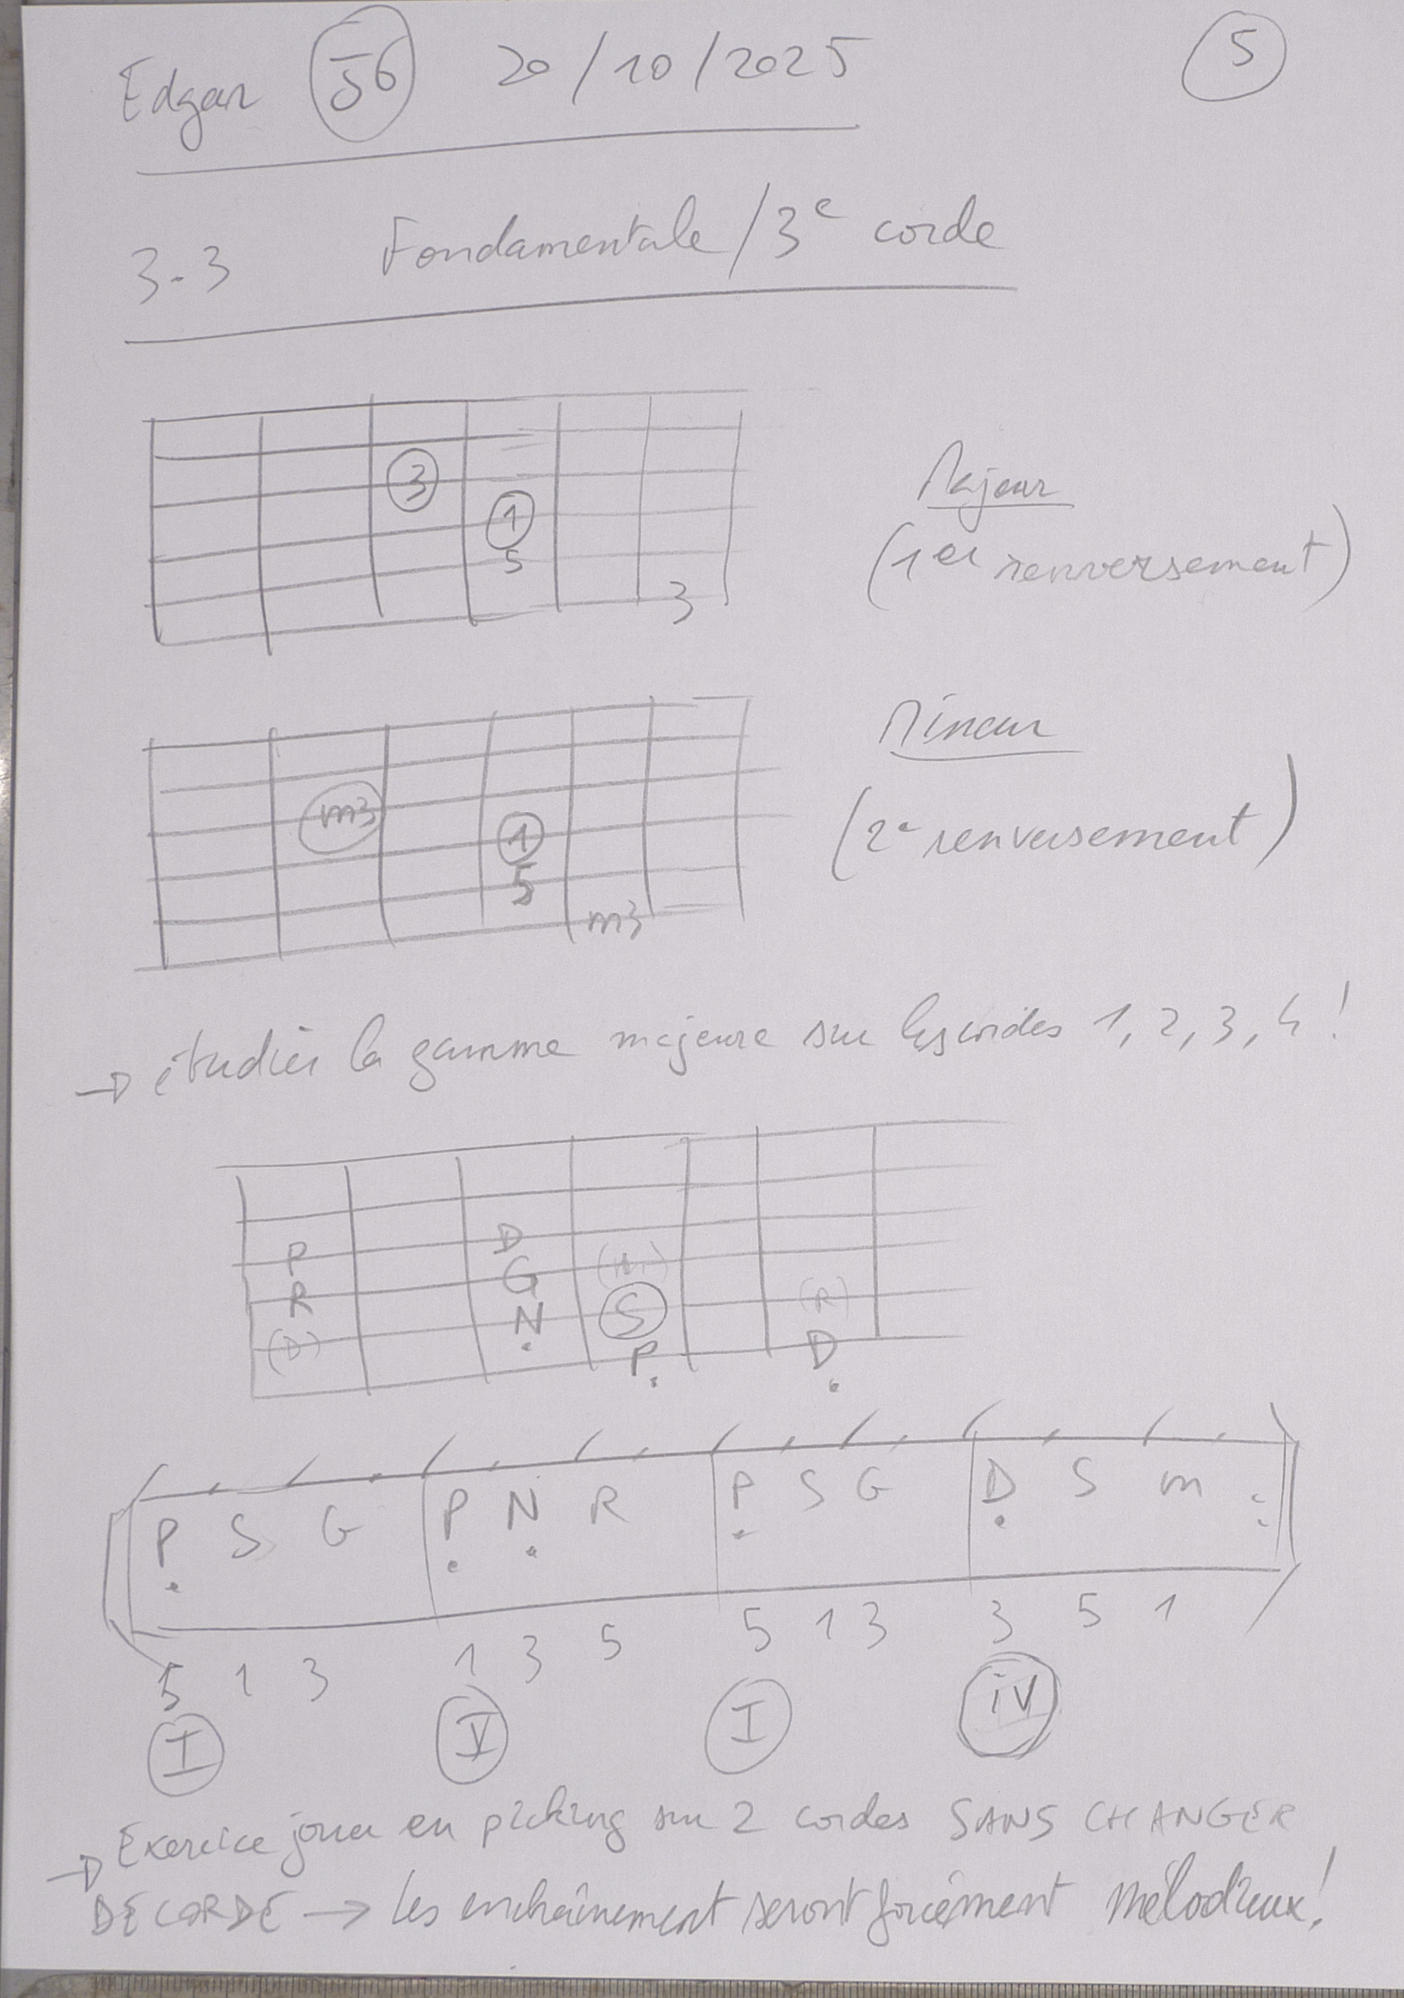 Edgar 56 20/10/2025 5
3-3 Fondamentale / 3e corde
3
1
5
3
Majeur
(1er renversement)
m3
1
5
m3
Mineur
(2e renversement)
→ étudier la gamme majeure sur les cordes 1, 2, 3, 4 !
P D
R G
(D) N S (R)
P D
P S G P N R P S G D S m
5 1 3 1 3 5 5 1 3 3 5 1
I V I iv
→ Exercice jouer en picking sur 2 cordes SANS CHANGER
DE CORDE → les enchaînement seront forcément mélodieux !